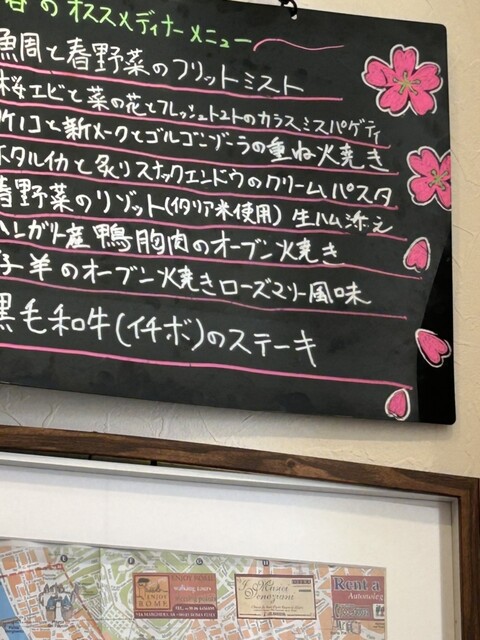 春のオススメディナーメニュー
魚周と春野菜のフリットミスト
桜エビと菜の花とフレッシュトマトのカラスミスパゲティ
竹ノコと新メークとゴルゴンゾーラの重ね火焼き
ホタルイカと炙りスナックエンドウのクリームパスタ
春野菜のリゾット(イタリア米使用) 生ハム添え
ハンガリー産鴨胸肉のオーブン火焼き
子羊のオーブン火焼きローズマリー風味
黒毛和牛(イチボ)のステーキ
ENJOY ROME
ENJOY ROME
walking tours
Rent a